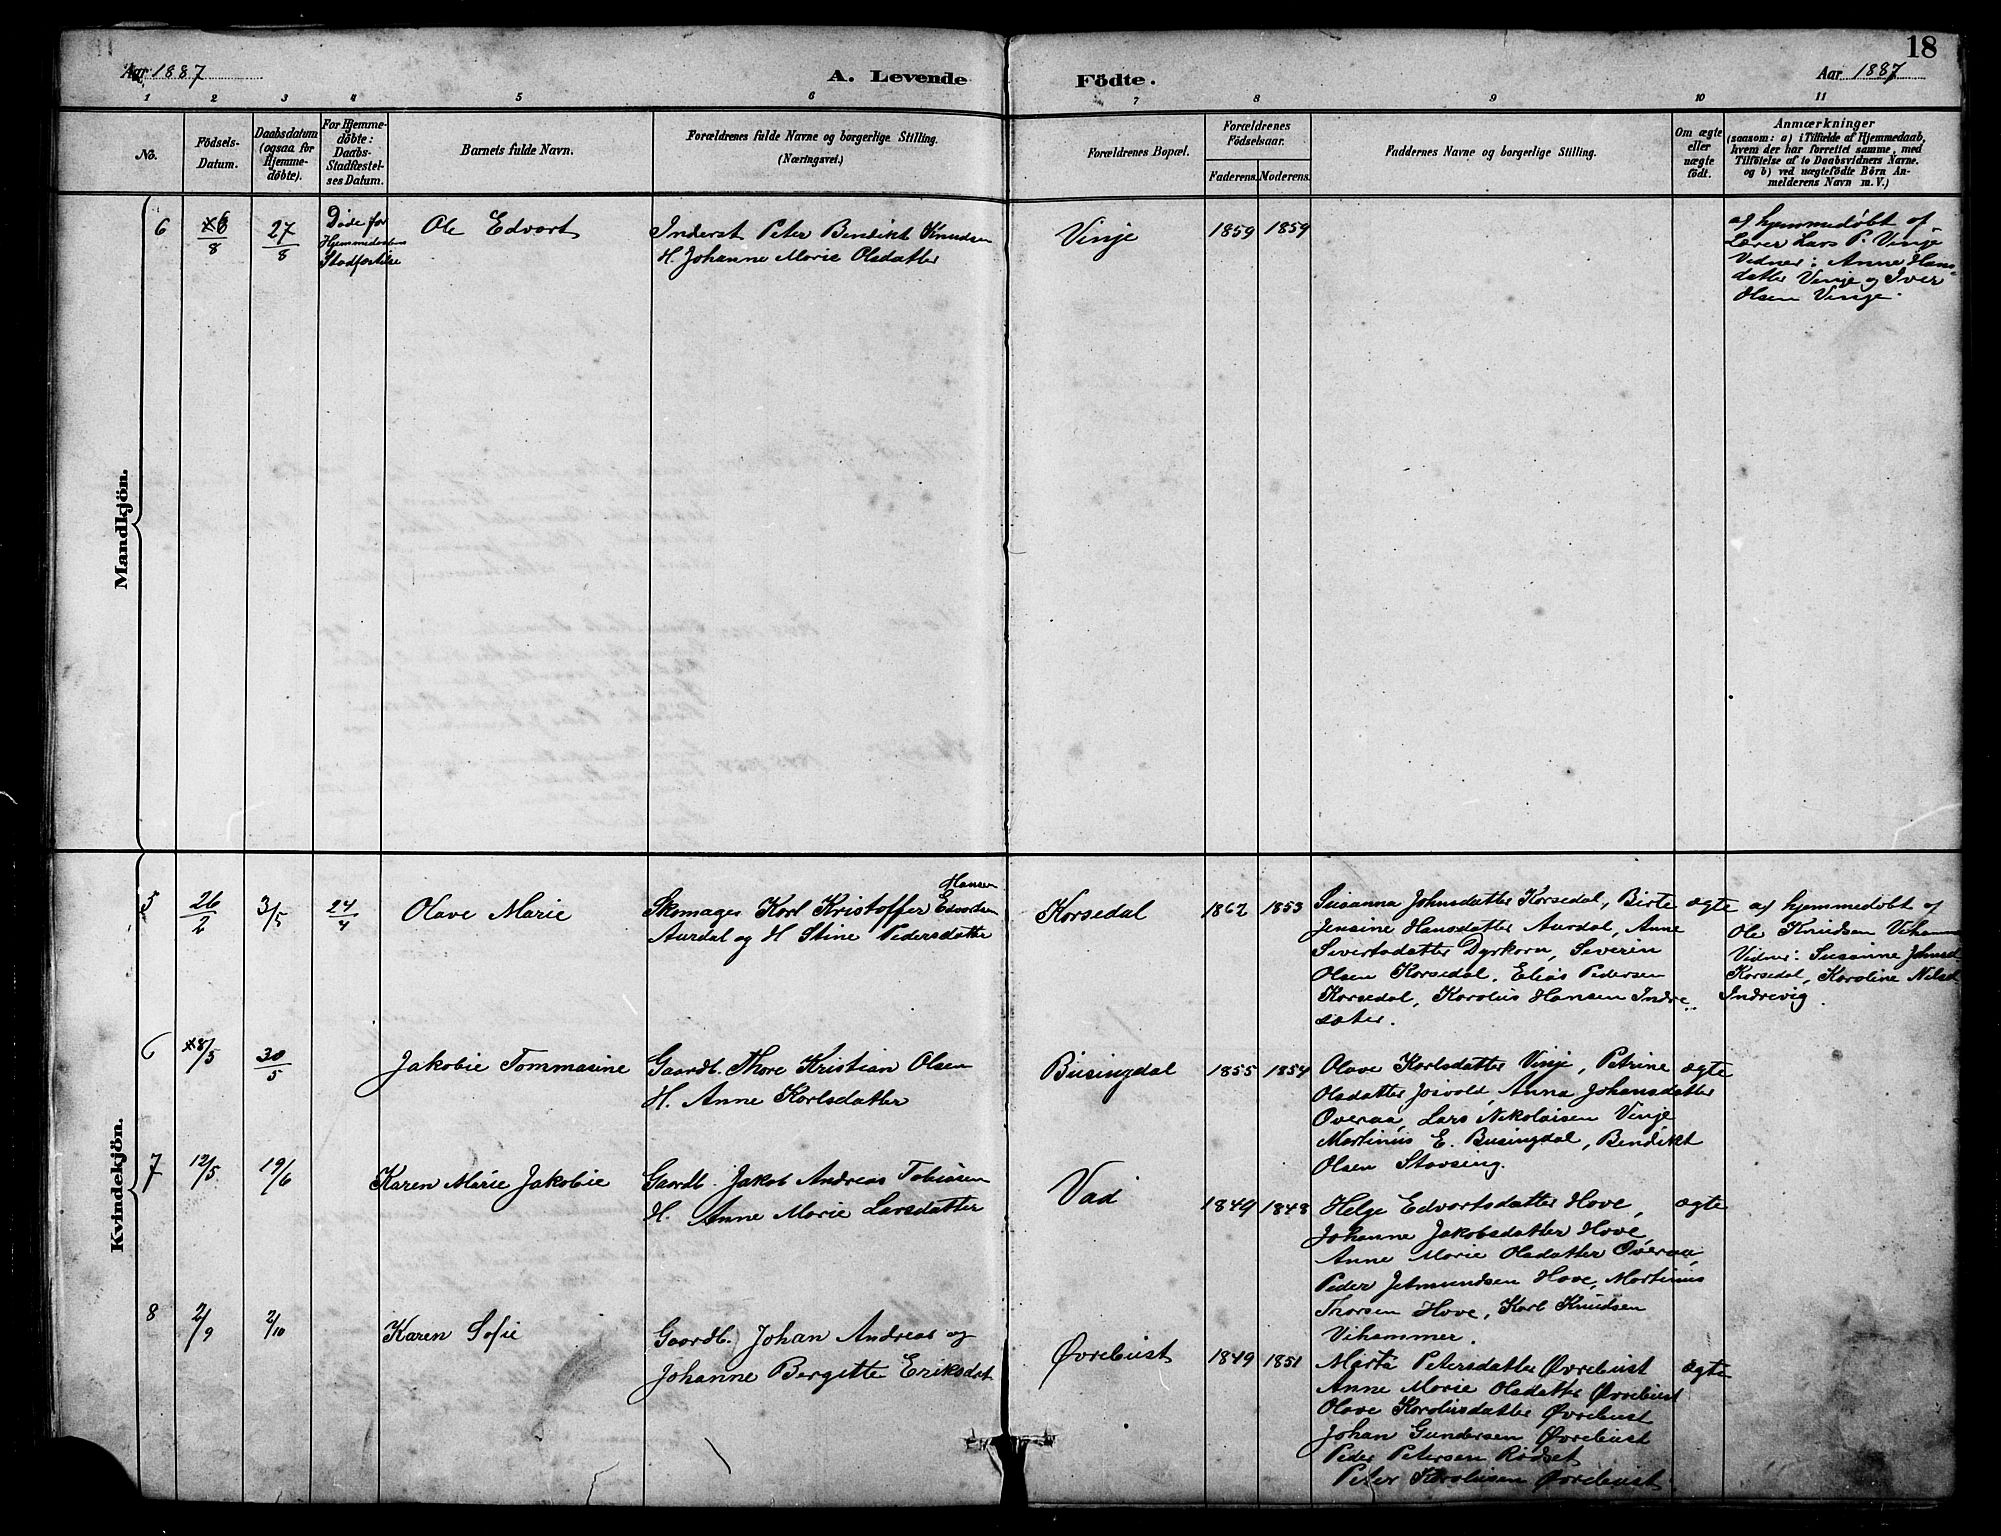 18
Aar 1887 A. Levende Födte. Aar 1887
1 2 3 4 5 6 7 8 9 10 11
No.
Födsels-
Datum.
Daabsdatum
(ogsaa for
Hjemme-
døbte).
For Hjemme-
døbte:
Daabs-
Stadfæstel-
ses Datum.
Barnets fulde Navn.
Forældrenes fulde Navne og borgerlige Stilling.
(Næringsvei.)
Forældrenes Bopæl.
Forældrenes
Födselsaar.
Faderens. Moderens.
Faddernes Navne og borgerlige Stilling.
Om ægte
eller
uægte
födt.
Anmærkninger
(saasom: a) i Tilfælde af Hjemmedaab,
hvem der har forrettet samme, med
Tilföielse af to Daabsvidners Navne.
og b) ved uægtefödte Börn An-
melderens Navn m. V.)
Mandkjön.
6 *6/8 27/8
Døde før
Hjemmedaabens
Stadfæstelse
Ole Edvart
Inderst Peter Bendikt Knudsen
H. Johanne Marie Olsdatter
Vinje 1859 1859
a) hjemmedøbt af
Lærer Lars P. Vinje
Vidner: Anne Hans-
datter Vinje og Iver
Olsen Vinje.
Kvindekjön.
5 26/2 3/5 24/4 Olave Marie
Hansen
Skomager Karl Kristoffer Edvardsen
Aurdal og H Stine Pedersdatter
Korsedal 1862 1853
Susanna Johnsdatter Korsedal, Birte
Jensine Hansdatter Aurdal, Anne
Sivertsdatter Dyrkorn, Severin
Olsen Korsedal, Elias Pedersen
Korsedal, Karolus Hansen Indre-
sæter.
ægte
a) hjemmedøbt af
Ole Knudsen Vihamm
Vidner: Susanne Johnsd
Korsedal, Karoline Nilsd
Indrevig.
6 *8/5 30/5 Jakobie Tommasine
Gaardb. Thore Kristian Olsen
H. Anne Karlsdatter
Busingdal 1855 1854
Olave Karlsdatter Vinje, Petrine
Olsdatter Josvold, Anna Johansdatter
Overaa, Lars Nikolaisen Vinje
Martinus E. Busingdal, Bendikt
Olsen Stavseng.
ægte
7 12/5 19/6 Karen Marie Jakobie
Gaardb. Jakob Andreas Tobiasen
H. Anne Marie Larsdatter
Vad 1849 1848
Helge Edvartsdatter Hove,
Johanne Jakobsdatter Hove,
Anne Marie Olsdatter Overaa,
Peder Jetmundsen Hove, Martinus
Thorsen Hove, Karl Knudsen
Vihammer.
ægte
8 2/9 2/10 Karen Sofie
Gaardb. Johan Andreas og
Johanne Bergitte Eriksdat
Øvrebust 1849 1851
Marta Petersdatter Øvrebust
Anne Marie Olsdatter Øvrebust
Olave Karolusdatter Øvrebust
Johan Gundersen Øvrebust
Peder Petersen Rødset
Peter Karolusen Øvrebust.
ægte